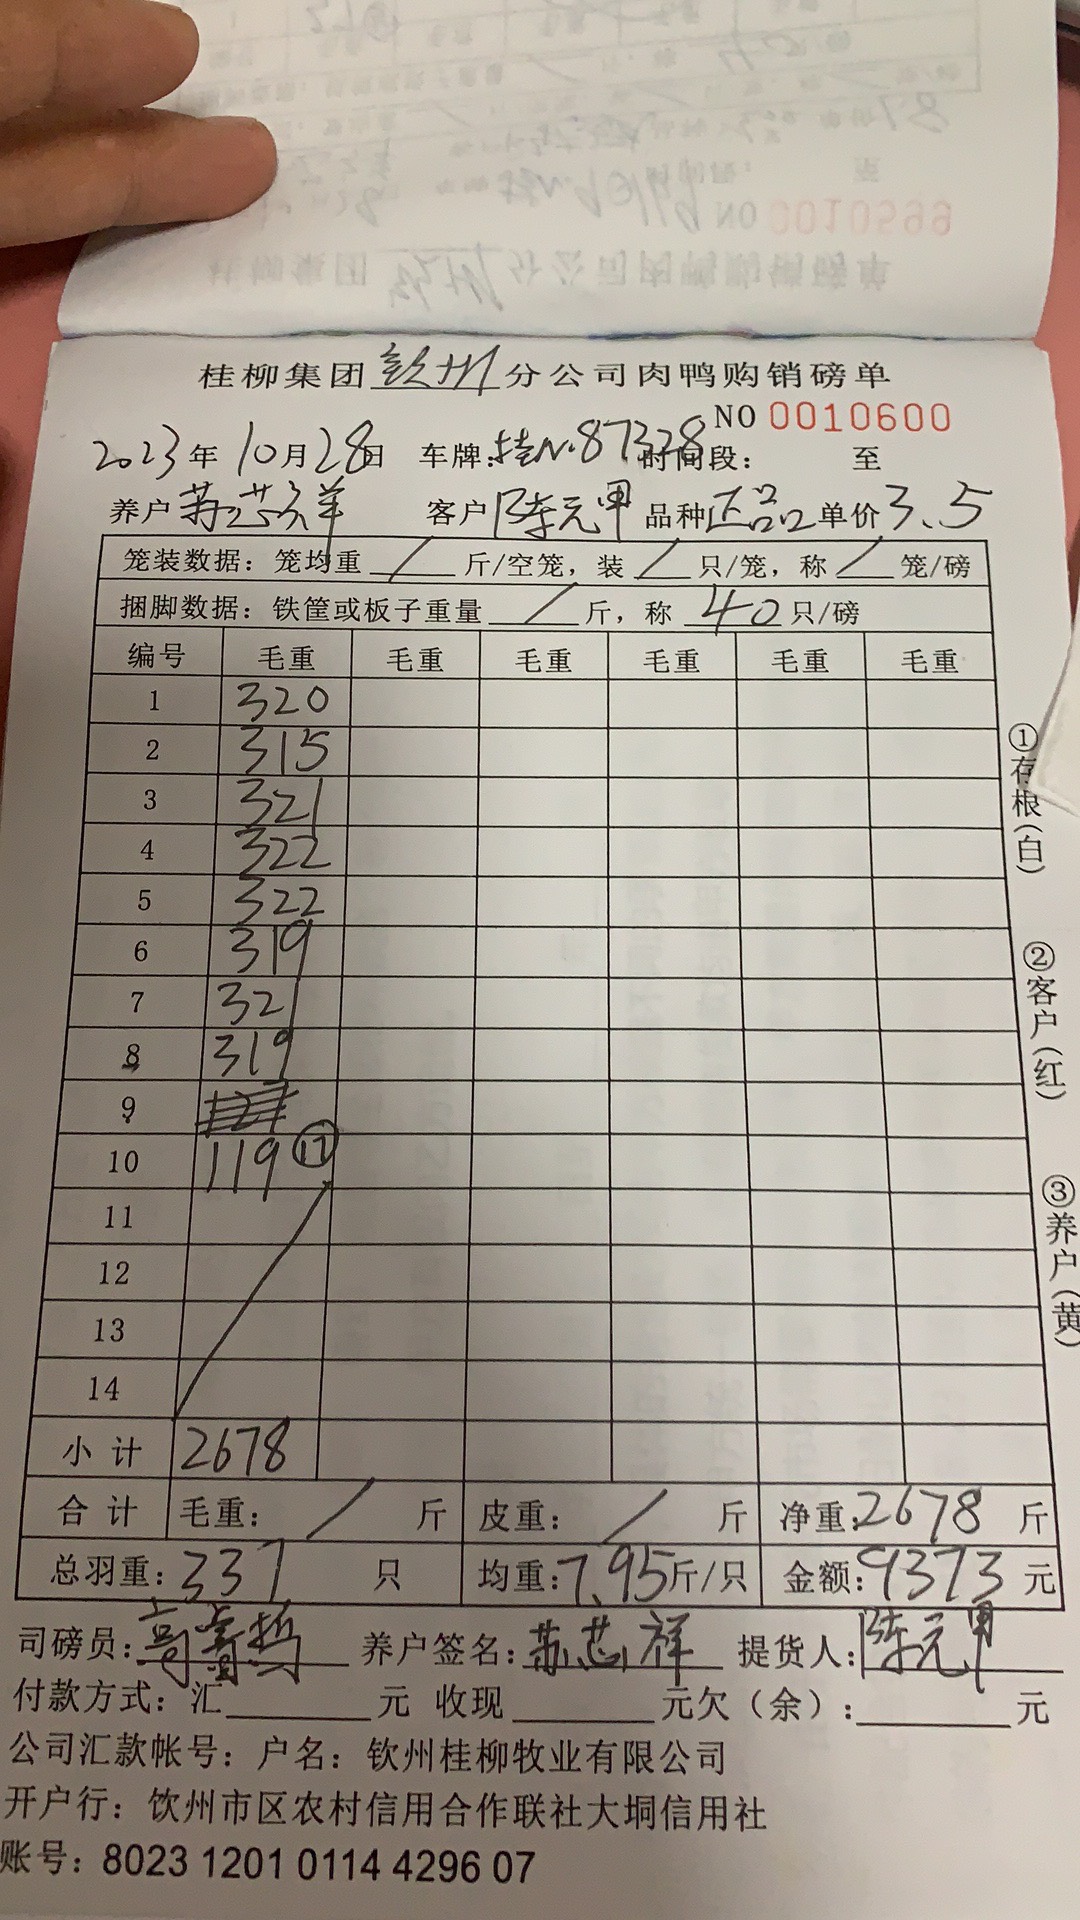 桂柳集团钦州分公司肉鸭购销磅单
NO 0010600
2023年10月28日 车牌:桂N·87328 时间段: 至
养户 苏芯祥 客户 陈元甲 品种 正品 单价 3.5
笼装数据: 笼均重 / 斤/空笼, 装 / 只/笼, 称 / 笼/磅
捆脚数据: 铁筐或板子重量 / 斤, 称 40 只/磅
编号 毛重 毛重 毛重 毛重 毛重 毛重
1 320
2 315
3 321
4 322
5 322
6 319
7 321
8 319
9
10 119 ⑰
11
12
13
14
小计 2678
合计 毛重: / 斤 皮重: / 斤 净重:2678 斤
总羽重:337 只 均重:7.95斤/只 金额:9373元
司磅员: 养户签名:苏芯祥 提货人:陈元甲
付款方式: 汇 元 收现 元欠(余): 元
公司汇款帐号: 户名: 钦州桂柳牧业有限公司
开户行: 钦州市区农村信用合作联社大垌信用社
账号: 8023 1201 0114 4296 07
①存根(白)
②客户(红)
③养户(黄)